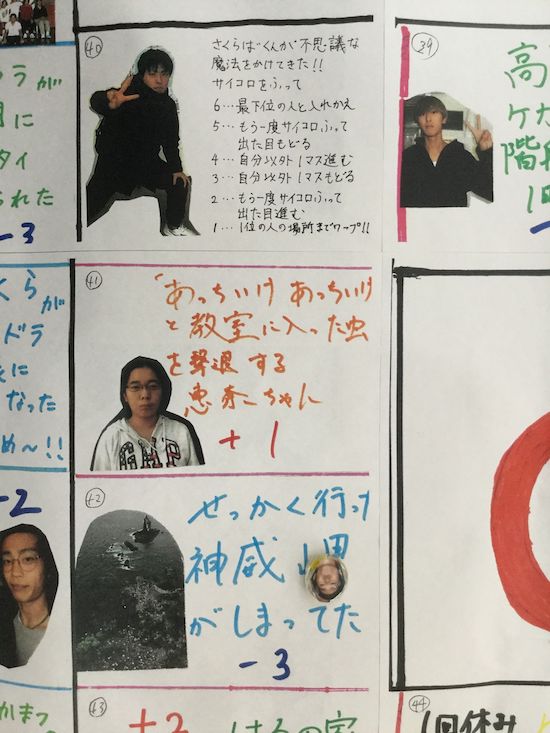 40
さくらばくんが不思議な
魔法をかけてきた!!
サイコロをふって
6…最下位の人と入れかえ
5…もう一度サイコロふって
出た目もどる
4…自分以外1マス進む
3…自分以外1マスもどる
2…もう一度サイコロふって
出た目進む
1…1位の人の場所までワープ!!
39
高
階段
1回
ラが
に
タイ
られた
-3
41
「あっちいけ あっちいけ
と教室に入った虫
を撃退する
恵奈ちゃん
+1
GAP
くらが
ドラ
に
なった
め〜!!
-2
42
せっかく行っ
神威岬
がしまってた
-3
かまつ
43
+2
はるの家
44
1回休み